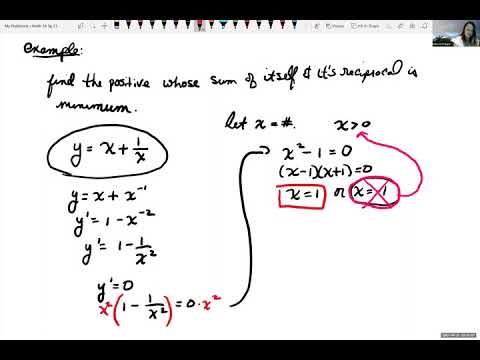 example:
find the positive whose sum of itself & it's reciprocal is
minimum.
let x = #.   x > 0
y = x + 1/x
y = x + x⁻¹
y' = 1 - x⁻²
y' = 1 - 1/x²
y' = 0
x² (1 - 1/x²) = 0 · x²
x² - 1 = 0
(x-1)(x+1) = 0
x = 1 or x = -1